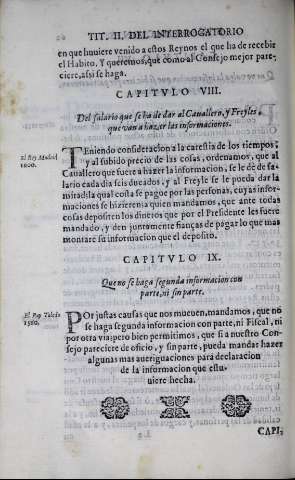 TIT. II. DEL INTERROGATORIO
en que huuiere venido a estos Reynos el que ha de recebir
el Habito. Y queremos, que como al Consejo mejor pare-
ciere, assi se haga.
CAPITVLO VIII.
Del salario que se ha de dar al Cauallero, y Freyles,
que van a hazer las informaciones.
El Rey Madrid
1600.
TEniendo consideracion a la carestia de los tiempos,
y al subido precio de las cosas, ordenamos, que al
Cauallero que fuere a hazer la informacion, se le dé de sa-
lario cada dia seis ducados, y al Freyle se le pueda dar la
mitad: la qual costa se pague por las personas, cuyas infor-
maciones se hizieren: a quien mandamos, que ante todas
cosas depositen los dineros que por el Presidente les fuere
mandado, y den juntamente fianças de pagar lo que mas
montare su informacion que el deposito.
CAPITVLO IX.
Que no se haga segunda informacion con
parte, ni sin parte.
El Rey Toledo
1560.
POr justas causas que nos mueuen, mandamos, que no
se haga segunda informacion con parte, ni Fiscal, ni
por otra via: pero bien permitimos, que si a nuestro Con-
sejo pareciere de oficio, y sin parte, pueda mandar hazer
algunas mas aueriguaciones para declaracion
de la informacion que estu-
uiere hecha.
CAPI-